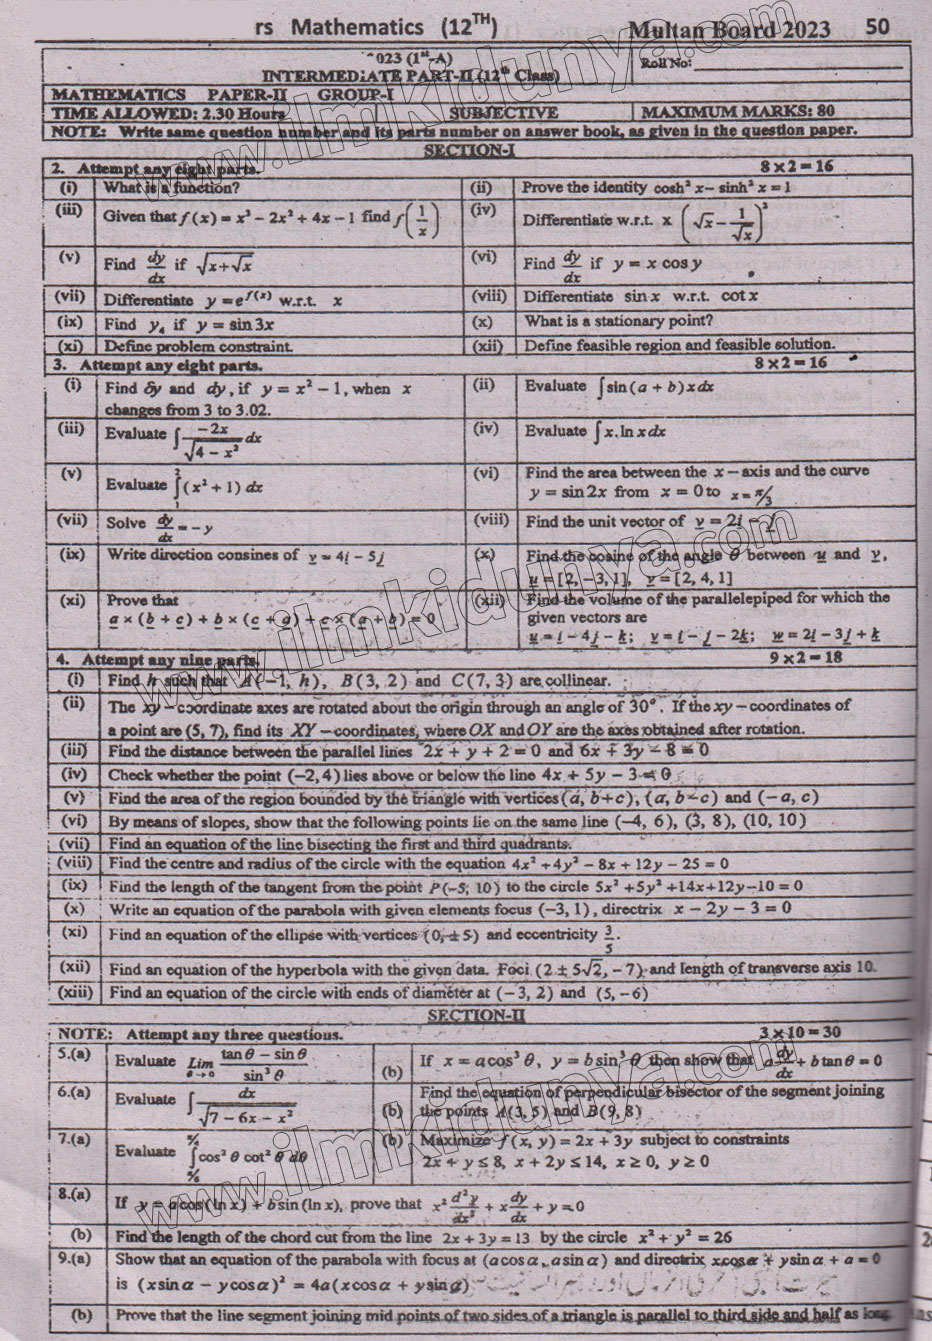 rs Mathematics (12TH) Multan Board 2023 50
023 (1st-A) Roll No:
INTERMEDIATE PART-II (12th Class)
MATHEMATICS PAPER-II GROUP-I
TIME ALLOWED: 2.30 Hours SUBJECTIVE MAXIMUM MARKS: 80
NOTE: Write same question number and its parts number on answer book, as given in the question paper.
SECTION-I
2. Attempt any eight parts. 8 × 2 = 16
(i) What is a function? (ii) Prove the identity cosh² x − sinh² x = 1
(iii) Given that f(x) = x³ − 2x² + 4x − 1 find f(1/x) (iv) Differentiate w.r.t. x (√x − 1/√x)²
(v) Find dy/dx if √(x+√x) (vi) Find dy/dx if y = x cos y
(vii) Differentiate y = e^f(x) w.r.t. x (viii) Differentiate sin x w.r.t. cot x
(ix) Find y₄ if y = sin 3x (x) What is a stationary point?
(xi) Define problem constraint. (xii) Define feasible region and feasible solution.
3. Attempt any eight parts. 8 × 2 = 16
(i) Find δy and dy, if y = x² − 1, when x (ii) Evaluate ∫sin(a + b)x dx
changes from 3 to 3.02.
(iii) Evaluate ∫ −2x/√(4 − x²) dx (iv) Evaluate ∫x.ln x dx
(v) Evaluate ∫₁²(x² + 1) dx (vi) Find the area between the x − axis and the curve
y = sin 2x from x = 0 to x = π/3
(vii) Solve dy/dx = −y (viii) Find the unit vector of v = 2i − j
(ix) Write direction consines of v = 4i − 5j (x) Find the cosine of the angle θ between u and v,
u = [2, −3, 1], v = [2, 4, 1]
(xi) Prove that (xii) Find the volume of the parallelepiped for which the
a × (b + c) + b × (c + a) + c × (a + b) = 0 given vectors are
u = i − 4j − k; v = i − j − 2k; w = 2i − 3j + k
4. Attempt any nine parts. 9 × 2 = 18
(i) Find h such that A(−1, h), B(3, 2) and C(7, 3) are collinear.
(ii) The xy − coordinate axes are rotated about the origin through an angle of 30°. If the xy − coordinates of
a point are (5, 7), find its XY − coordinates, where OX and OY are the axes obtained after rotation.
(iii) Find the distance between the parallel lines 2x + y + 2 = 0 and 6x + 3y − 8 = 0
(iv) Check whether the point (−2, 4) lies above or below the line 4x + 5y − 3 = 0
(v) Find the area of the region bounded by the triangle with vertices (a, b+c), (a, b−c) and (−a, c)
(vi) By means of slopes, show that the following points lie on the same line (−4, 6), (3, 8), (10, 10)
(vii) Find an equation of the line bisecting the first and third quadrants.
(viii) Find the centre and radius of the circle with the equation 4x² + 4y² − 8x + 12y − 25 = 0
(ix) Find the length of the tangent from the point P(−5, 10) to the circle 5x² + 5y² + 14x + 12y − 10 = 0
(x) Write an equation of the parabola with given elements focus (−3, 1), directrix x − 2y − 3 = 0
(xi) Find an equation of the ellipse with vertices (0, ±5) and eccentricity 3/5.
(xii) Find an equation of the hyperbola with the given data. Foci (2 ± 5√2, −7) and length of transverse axis 10.
(xiii) Find an equation of the circle with ends of diameter at (−3, 2) and (5, −6)
SECTION-II
NOTE: Attempt any three questions. 3 × 10 = 30
5.(a) Evaluate Lim θ→0 (tan θ − sin θ)/sin³ θ (b) If x = a cos³ θ, y = b sin³ θ then show that a dy/dx + b tan θ = 0
6.(a) Evaluate ∫ dx/√(7 − 6x − x²) (b) Find the equation of perpendicular bisector of the segment joining
the points A(3, 5) and B(9, 8)
7.(a) Evaluate ∫ cos² θ cot² θ dθ (b) Maximize f(x, y) = 2x + 3y subject to constraints
2x + y ≤ 8, x + 2y ≤ 14, x ≥ 0, y ≥ 0
8.(a) If y = a cos(ln x) + b sin(ln x), prove that x² d²y/dx² + x dy/dx + y = 0
(b) Find the length of the chord cut from the line 2x + 3y = 13 by the circle x² + y² = 26
9.(a) Show that an equation of the parabola with focus at (a cos α, a sin α) and directrix x cos α + y sin α + a = 0
is (x sin α − y cos α)² = 4a(x cos α + y sin α)
(b) Prove that the line segment joining mid points of two sides of a triangle is parallel to third side and half as long.
www.ilmkidunya.com
www.ilmkidunya.com
www.ilmkidunya.com